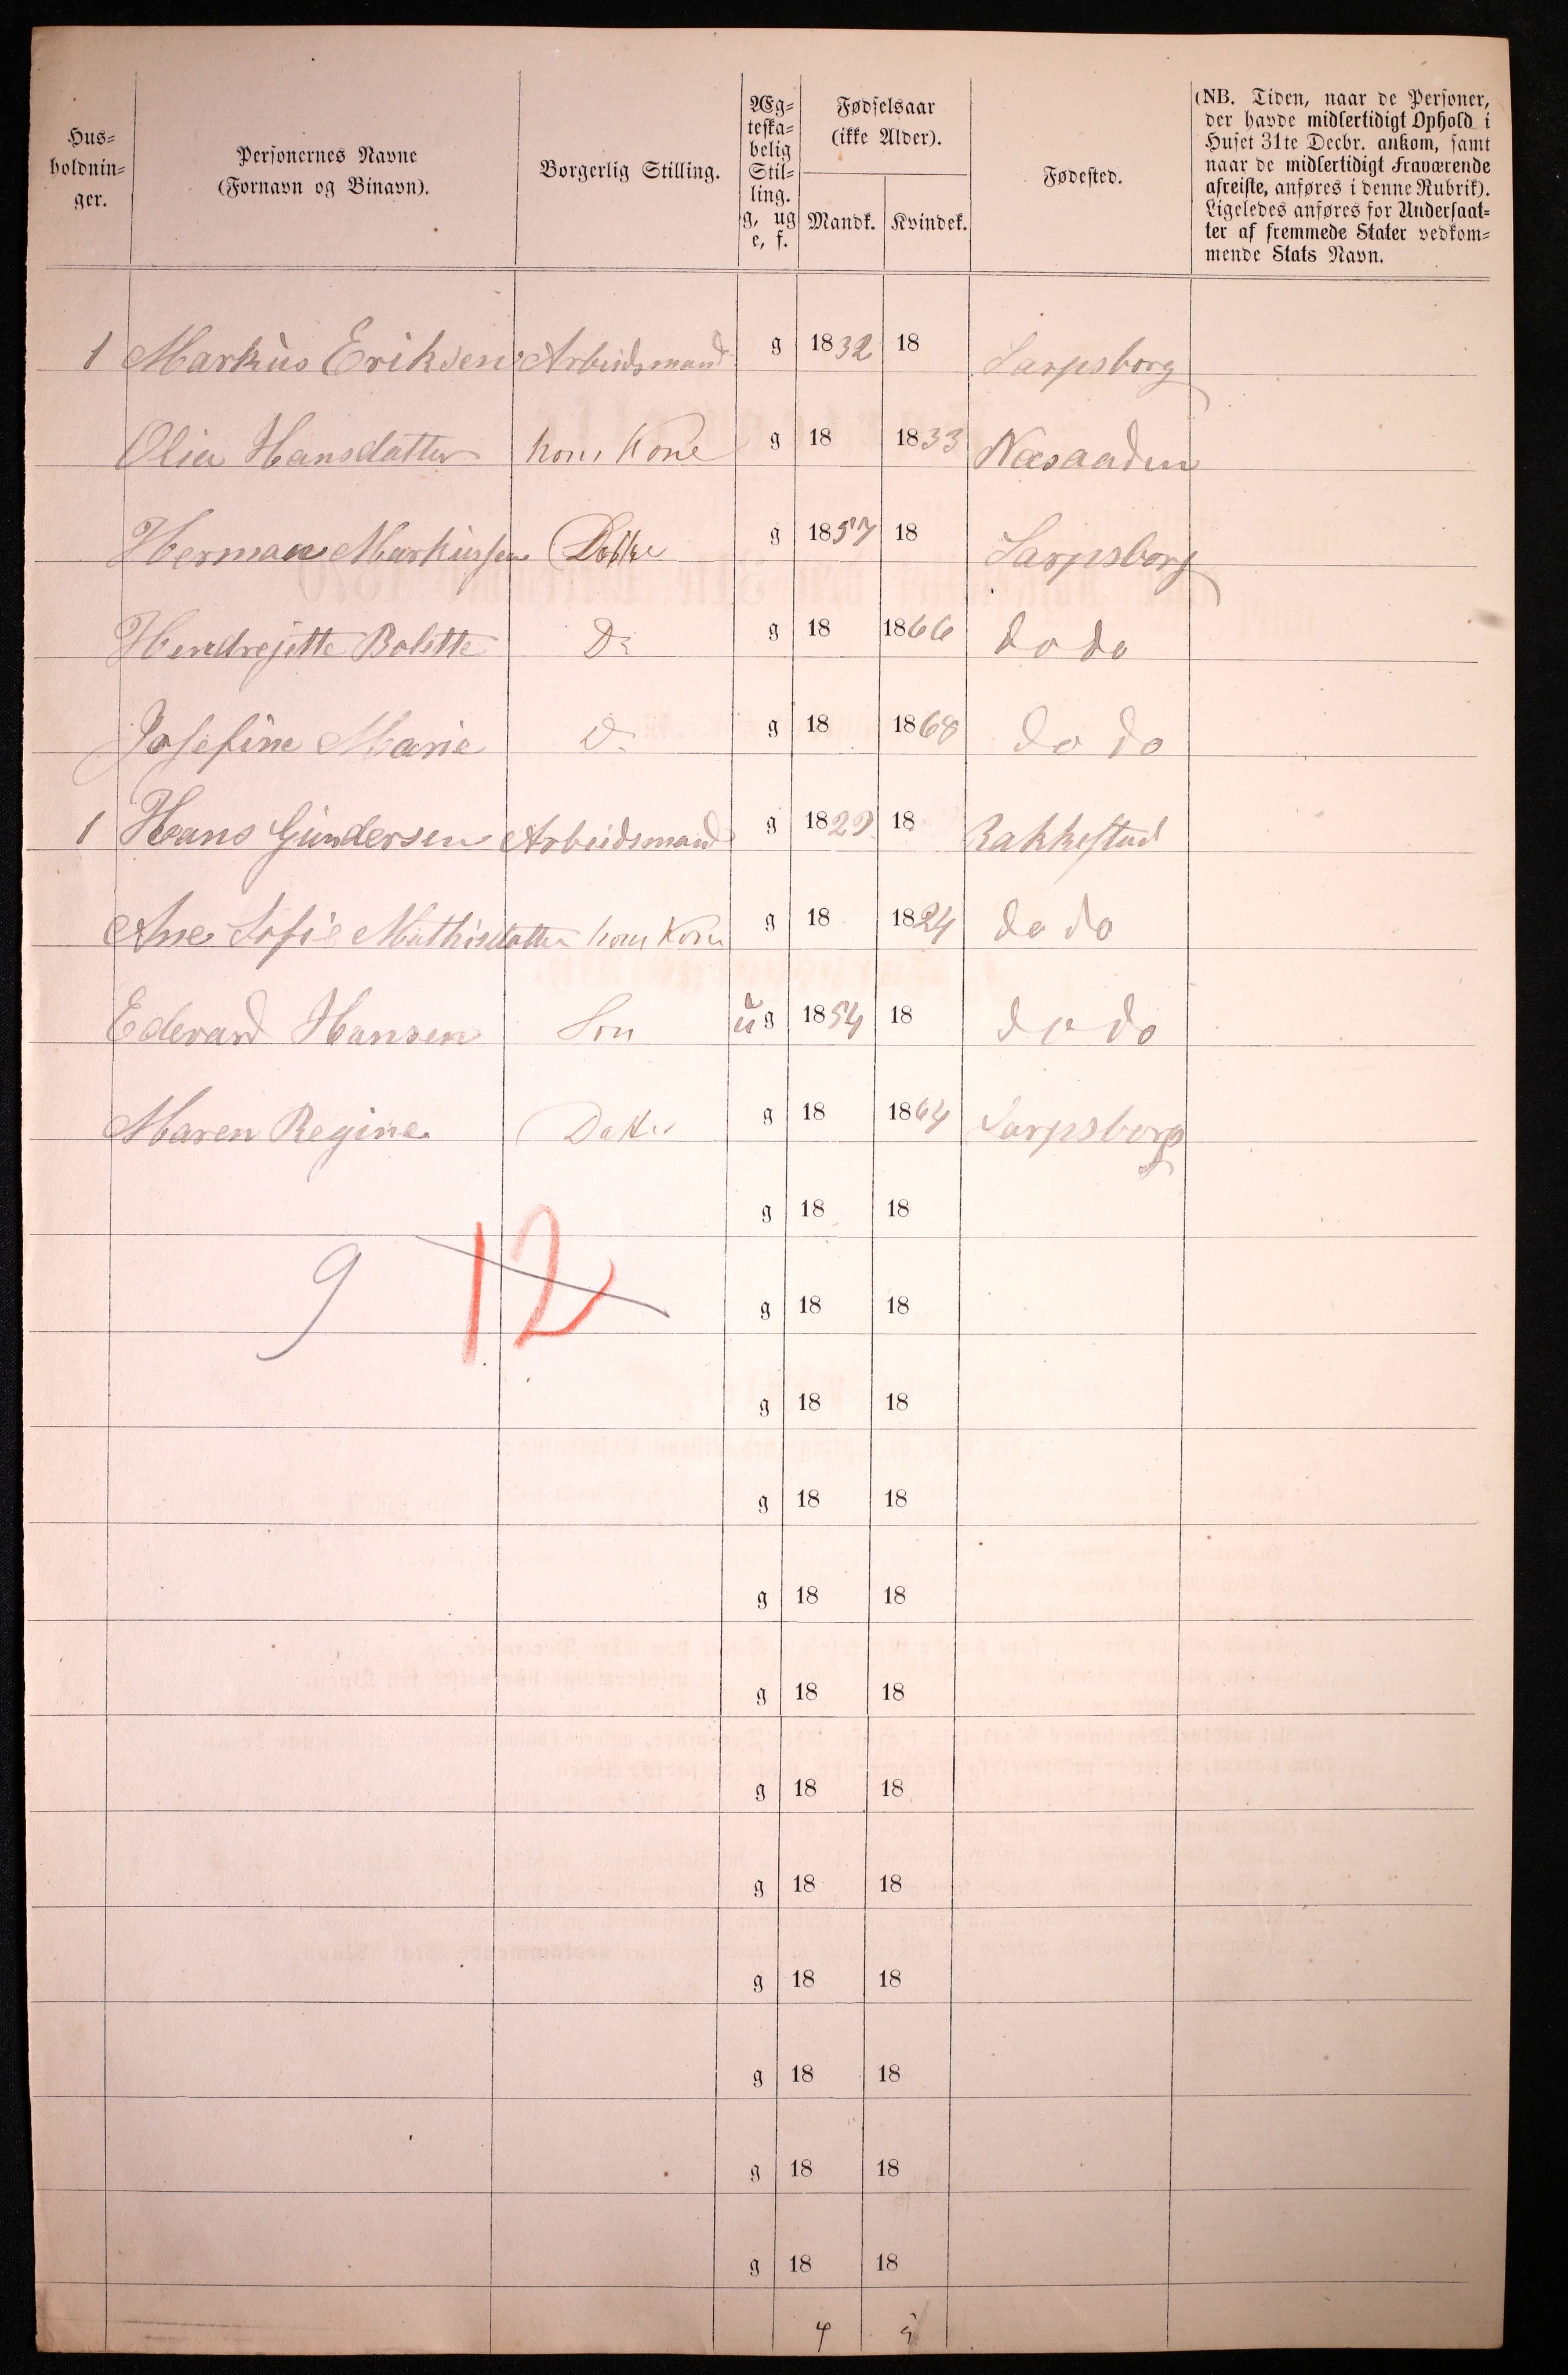 Hus=
holdnin=
ger.
Personernes Navne
(Fornavn og Binavn).
Borgerlig Stilling.
Æg=
teska=
belig
Stil=
ling.
g, ug
e, f.
Fødselsaar
(ikke Alder).
Mandk. Kvindek.
Fødested.
(NB. Tiden, naar de Personer,
der havde midlertidigt Ophold i
Huset 31te Decbr. ankom, samt
naar de midlertidigt Fraværende
afreiste, anføres i denne Rubrik).
Ligeledes anføres for Undersaat=
ter af fremmede Stater vedkom=
mende Stats Navn.
1 Markus Eriksen Arbeidsmand g 1832 18 Sarpsborg
Olia Hansdatter hans Kone g 18 1833
Herman Markussen g 1857 18 Sarpsborg
Hendrejette Bolette D g 18 1866 do do
Josefine Marie D g 18 1868 do do
1 Hans Gundersen Arbeidsmand g 1829 18 Rakkestad
Ane Sofie Mathisdatter hans Kone g 18 1824 do do
Edevard Hansen Søn ug 1854 18 do do
Maren Regine Datter g 18 1864 Sarpsborg
g 18 18
9 12 g 18 18
g 18 18
g 18 18
g 18 18
g 18 18
g 18 18
g 18 18
g 18 18
g 18 18
g 18 18
g 18 18
4 5